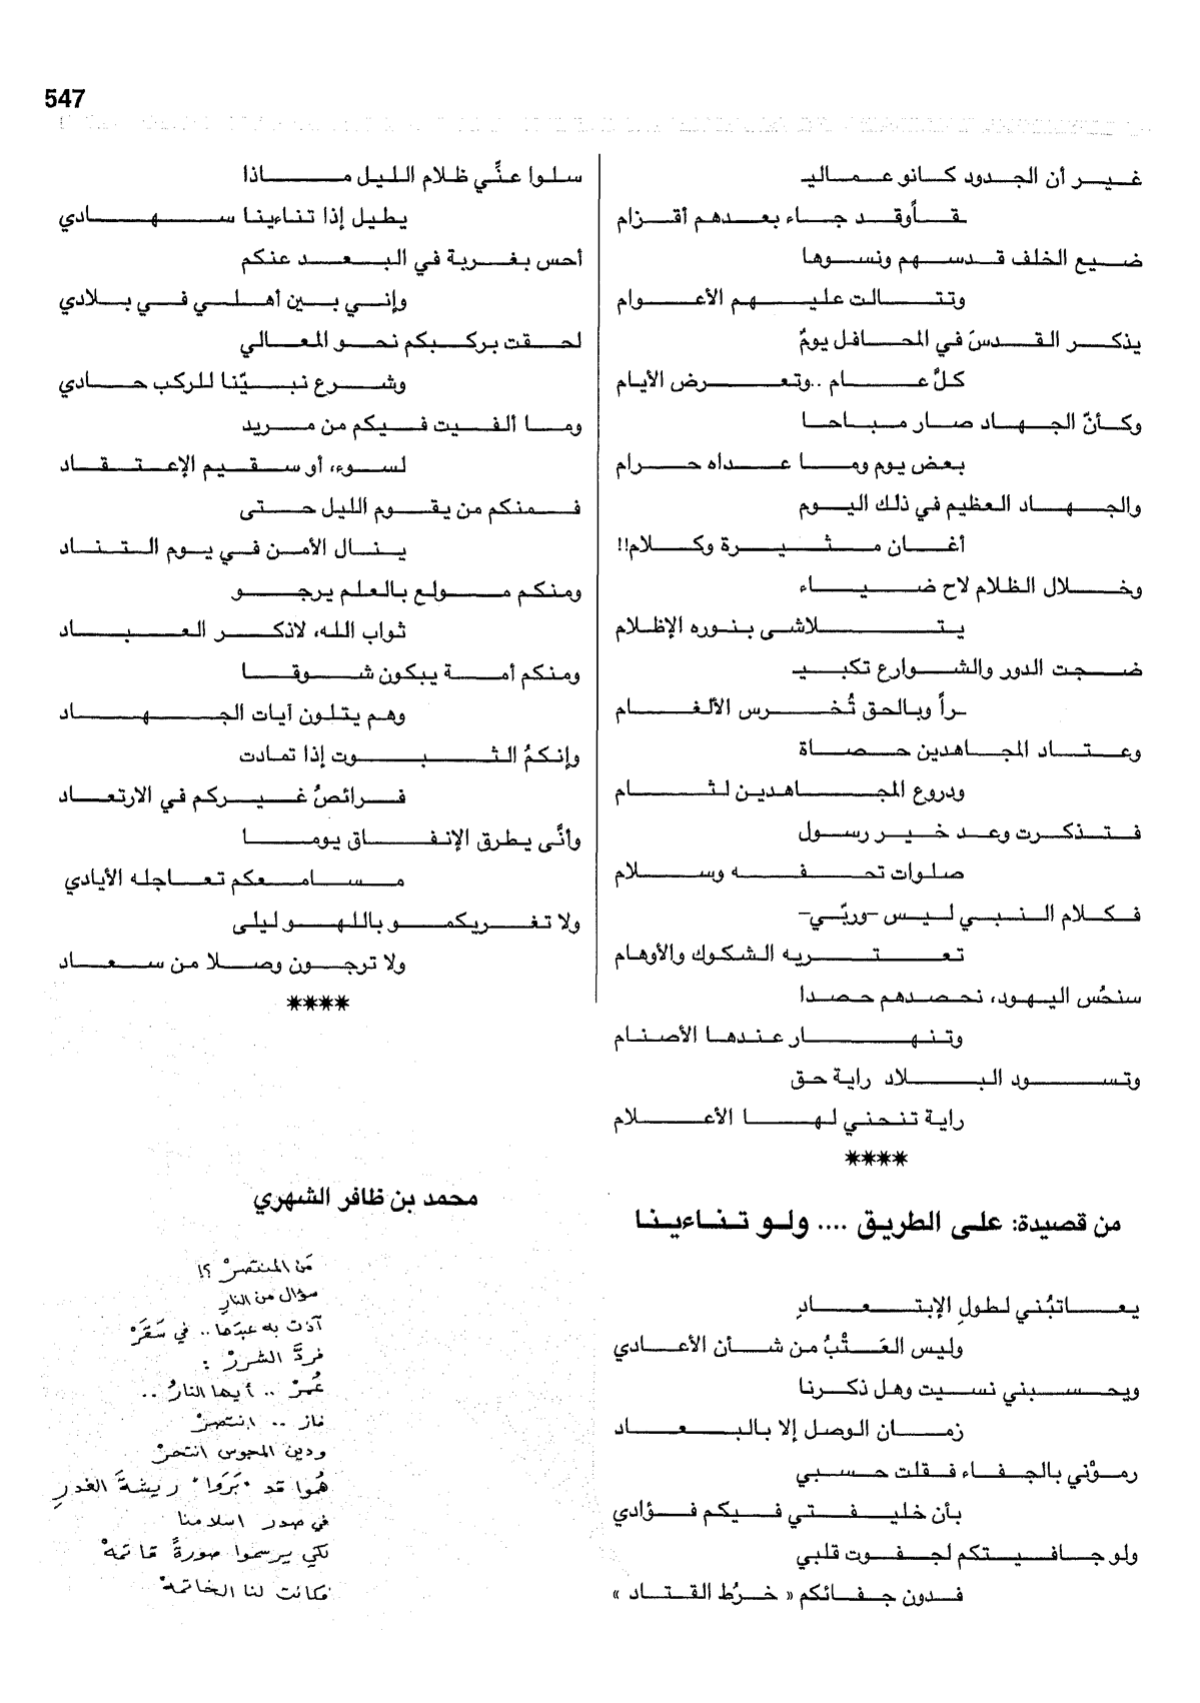 547
غير أن الجدود كانو عماليـ
ـقاً وقد جاء بعدهم أقزام
ضيع الخلف قدسهم ونسوها
وتتالت عليهم الأعوام
يذكر القدسَ في المحافل يومٌ
كلَّ عام ..وتعرض الأيام
وكأنّ الجهاد صار مباحا
بعض يوم وما عداه حرام
والجهاد العظيم في ذلك اليوم
أغان مثيرة وكلام!!
وخلال الظلام لاح ضياء
يتلاشى بنوره الإظلام
ضجت الدور والشوارع تكبيـ
ـراً وبالحق تُخرس الألغام
وعتاد المجاهدين حصاة
ودروع المجاهدين لثام
فتذكرت وعد خير رسول
صلوات تحفه وسلام
فكلام النبي ليس -وربّي-
تعتريه الشكوك والأوهام
سنحُس اليهود، نحصدهم حصدا
وتنهار عندها الأصنام
وتسود البلاد راية حق
راية تنحني لها الأعلام
****
من قصيدة: على الطريق .... ولو تناءينا
يعاتبُني لطولِ الإبتعادِ
وليس العَتْبُ من شأن الأعادي
ويحسبني نسيت وهل ذكرنا
زمان الوصل إلا بالبعاد
رموْني بالجفاء فقلت حسبي
بأن خليفتي فيكم فؤادي
ولو جافيتكم لجفوت قلبي
فدون جفائكم « خرْط القتاد »
سلوا عنِّي ظلام الليل ماذا
يطيل إذا تناءينا سهادي
أحس بغربة في البعد عنكم
وإني بين أهلي في بلادي
لحقت بركبكم نحو المعالي
وشرع نبيّنا للركب حادي
وما ألفيت فيكم من مريد
لسوء، أو سقيم الإعتقاد
فمنكم من يقوم الليل حتى
ينال الأمن في يوم التناد
ومنكم مولع بالعلم يرجو
ثواب الله، لاذكر العباد
ومنكم أمة يبكون شوقا
وهم يتلون آيات الجهاد
وإنكمُ الثبوت إذا تمادت
فرائصُ غيركم في الارتعاد
وأنَّى يطرق الإنفاق يوما
مسامعكم تعاجله الأيادي
ولا تغريكمو باللهو ليلى
ولا ترجون وصلا من سعاد
****
محمد بن ظافر الشهري
مَن المنتصرْ ؟!
سؤال من النارِ
آذت به عبدَها .. في سَقَرْ
فردَّ الشررْ :
عُمرْ .. أيها النارُ ..
فاز .. انتصرْ
ودين المجوس انتحرْ
هُموا قد "بَرَوا" ريشةَ الغدرِ
في صدر اسلامنا
لكي يرسموا صورةً قاتمهْ
فكانت لنا الخاتمهْ